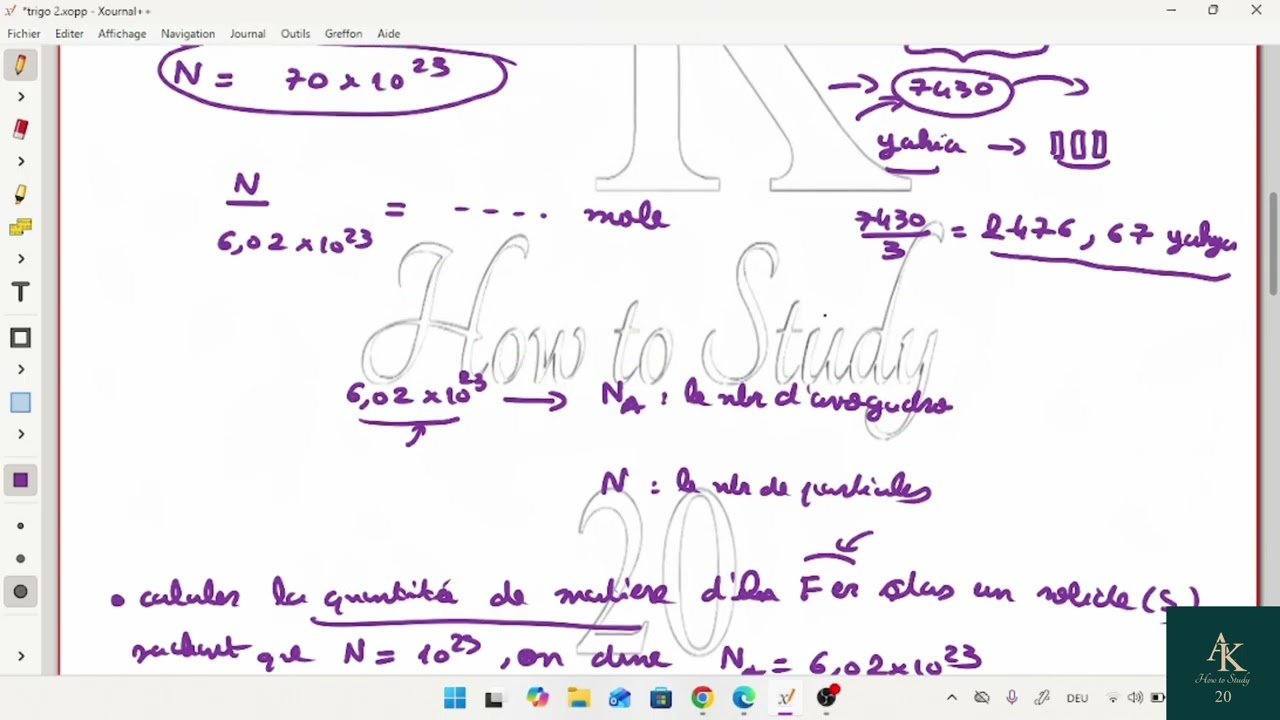 *trigo 2.xopp - Xournal++
Fichier Editer Affichage Navigation Journal Outils Greffon Aide
N = 70 x 10^23
7430
yahia → 000
N / 6,02 x 10^23 = ---- mole
7430 / 3 = 2476,67 yahya
How to Study
6,02 x 10^23 → N_A : le nbr d'avogadro
N : le nbr de particules
20
• calculer la quantité de matière Fer dans un solide (S)
sachant que N = 10^23, on donne N_A = 6,02 x 10^23
T
DEU
AK
How to Study
20